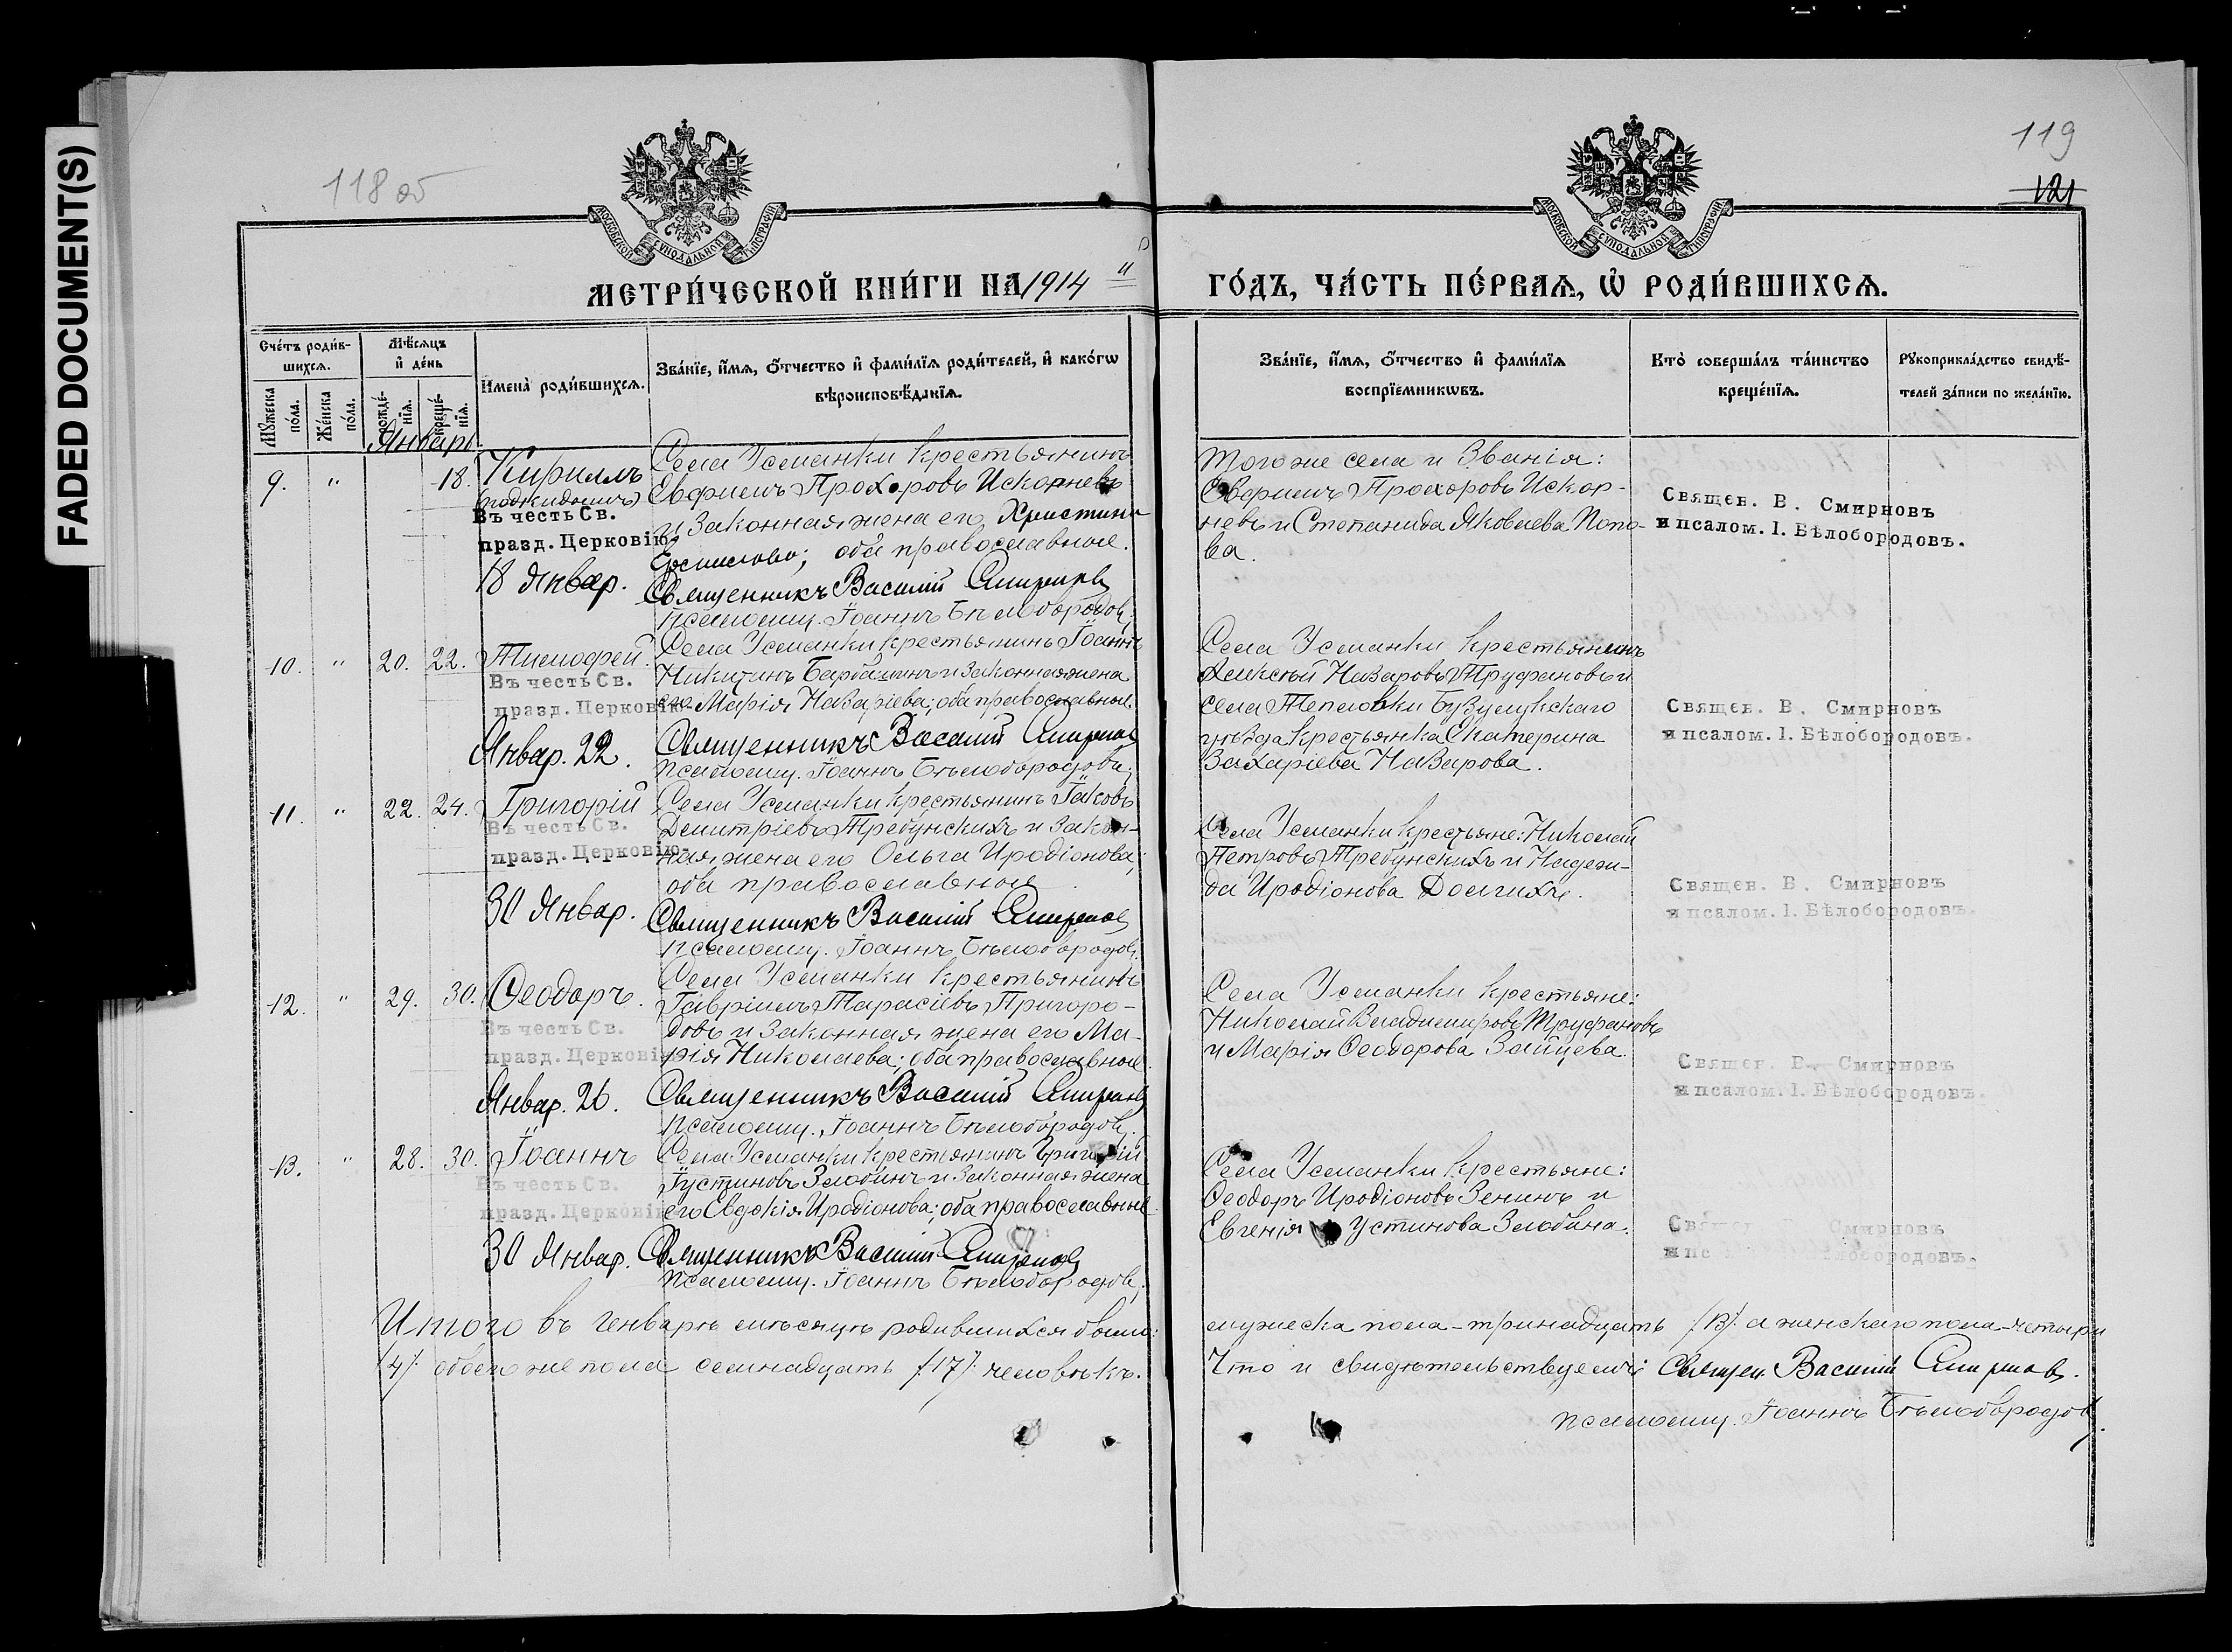 FADED DOCUMENT(S)
118 об
119
121
МОСКОВСКОЙ СУНОДАЛЬНОЙ ТИПОГРАФІИ
МОСКОВСКОЙ СУНОДАЛЬНОЙ ТИПОГРАФІИ
МЕТРИ́ЧЕСКОЙ КНИ́ГИ НА 1914
ГО́ДЪ, ЧА́СТЬ ПЕ́РВАѦ, Ѡ҆ РОДИ́ВШИХСѦ.
Сче́тъ роди́в-
шихсѧ.
Мꙋ́жеска
по́ла.
Же́нска
по́ла.
Мѣ́сѧцъ
и҆ де́нь
рожде́-
нїѧ.
креще́-
нїѧ.
И҆мена̀ роди́вшихсѧ.
Зва́нїе, и҆́мѧ, ѻ҆́тчество и҆ фами́лїѧ роди́телей, и҆ како́гѡ
вѣроисповѣ́данїѧ.
Зва́нїе, и҆́мѧ, ѻ҆́тчество и҆ фами́лїѧ
воспрїе́мникѡвъ.
Кто̀ соверша́лъ та́инство
креще́нїѧ.
Рꙋкоприкла́дство свидѣ́-
телей за́писи по жела́нїю.
Январь.
9. " 18. Кириллъ
(подкидышъ)
Въ честь Св.
празд. Церковію
18 Январ.
Села Усманки крестьянинъ
Евфимъ Прохоровъ Искорневъ
и законная жена его Христина
оба православные.
Священникъ Василій Смирновъ
псаломщ. Іоаннъ Бѣлобородовъ.
Того же села и званія:
Евфимъ Прохоровъ Искор-
невъ и Степанида Яковлева Попо-
ва.
Священ. В. Смирновъ
и псалом. І. Бѣлобородовъ.
10. " 20. 22. Тимофей.
Въ честь Св.
празд. Церковію
Январ. 22.
Села Усманки крестьянинъ Іоаннъ
Никитинъ Барбашинъ и законная жена
его Марія Назаріева; оба православные.
Священникъ Василій Смирновъ
псаломщ. Іоаннъ Бѣлобородовъ.
Села Усманки крестьянинъ
Алексѣй Назаровъ Труфановъ и
села Тепловки Бузулукскаго
уѣзда крестьянка Екатерина
Захаріева Назарова.
Священ. В. Смирновъ
и псалом. І. Бѣлобородовъ.
11. " 22. 24. Григорій
Въ честь Св.
празд. Церковію
30 Январ.
Села Усманки крестьянинъ Іаковъ
Димитріевъ Требунскихъ и закон-
ная жена его Ольга Иродіонова;
оба православные.
Священникъ Василій Смирновъ
псаломщ. Іоаннъ Бѣлобородовъ.
Села Усманки крестьяне: Николай
Петровъ Требунскихъ и Надеж-
да Иродіонова Долгихъ.
Священ. В. Смирновъ
и псалом. І. Бѣлобородовъ.
12. " 29. 30. Ѳеодоръ.
Въ честь Св.
празд. Церковію
Январ. 26.
Села Усманки крестьянинъ
Гавріилъ Тарасіевъ Пригоро-
довъ и законная жена его Ма-
рія Николаева; оба православные.
Священникъ Василій Смирновъ
псаломщ. Іоаннъ Бѣлобородовъ.
Села Усманки крестьяне:
Николай Владимировъ Труфановъ
и Марія Ѳеодорова Зайцева.
Священ. В. Смирновъ
и псалом. І. Бѣлобородовъ.
13. " 28. 30. Іоаннъ
Въ честь Св.
празд. Церковію
30 Январ.
Села Усманки крестьянинъ Григорій
Іустиновъ Злобинъ и законная жена
его Евдокія Иродіонова; оба православные.
Священникъ Василій Смирновъ
псаломщ. Іоаннъ Бѣлобородовъ.
Села Усманки крестьяне:
Ѳеодоръ Иродіоновъ Зенинъ и
Евгенія Устинова Злобина.
Смирновъ
Бѣлобородовъ.
Итого въ Генварѣ мѣсяцѣ родившихся было:
мужеска пола – тринадцать /13/. а женскаго пола – четыре
/4/. обоего же пола семнадцать /17/. человѣкъ.
Что и свидѣтельствуемъ: Священ. Василій Смирновъ.
псаломщ. Іоаннъ Бѣлобородовъ.